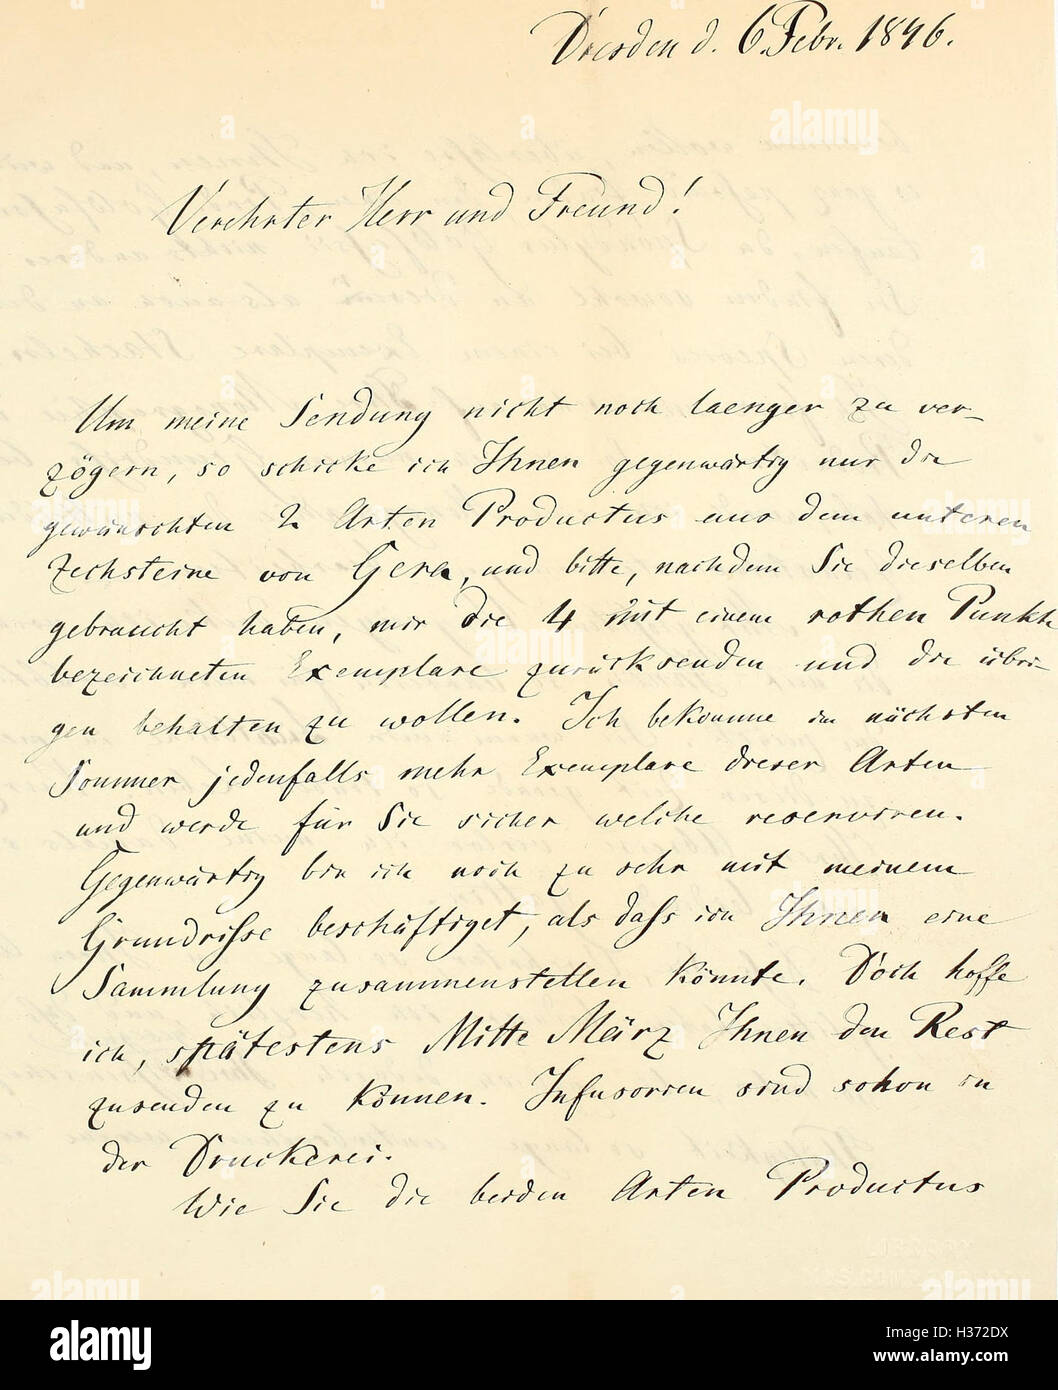 Dresden d. 6. Febr. 1846.
Verehrter Herr und Freund!
Um meine Sendung nicht noch laenger zu ver-
zögern, so schicke ich Ihnen gegenwärtig nur die
gewünschten 2 Arten Productus aus dem unteren
Zechsteine von Gera, und bitte, nachdem Sie dieselben
gebraucht haben, mir die 4 mit einem rothen Punkte
bezeichneten Exemplare zurücksenden und die übri-
gen behalten zu wollen. Ich bekomme im nächsten
Sommer jedenfalls mehr Exemplare dieser Arten
und werde für Sie sicher welche reserviren.
Gegenwärtig bin ich noch zu sehr mit meinem
Grundrisse beschäftiget, als daß ich Ihnen eine
Sammlung zusammenstellen könnte. Doch hoffe
ich, spätestens Mitte März Ihnen den Rest
zusenden zu können. Infusorien sind schon in
der Druckerei.
Wie Sie die beiden Arten Productus
alamy
Image ID: H372DX
www.alamy.com